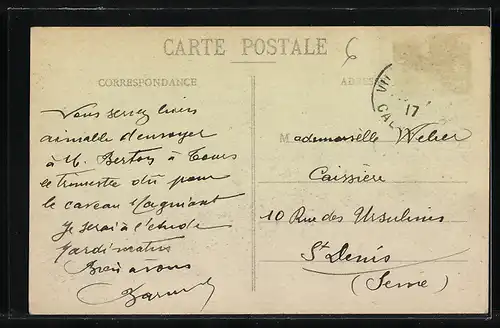 CARTE POSTALE
6
CORRESPONDANCE
ADRES
VIL
17
CAL
Vous seriez bien
aimable d'envoyer
à M. Berton à Tours
le trimestre dû pour
le caveau Magniant
Je serai à l'étude
mardi matin
Bien à vous
Mademoiselle Weber
Caissière
10 Rue des Ursulines
St Denis
(Seine)